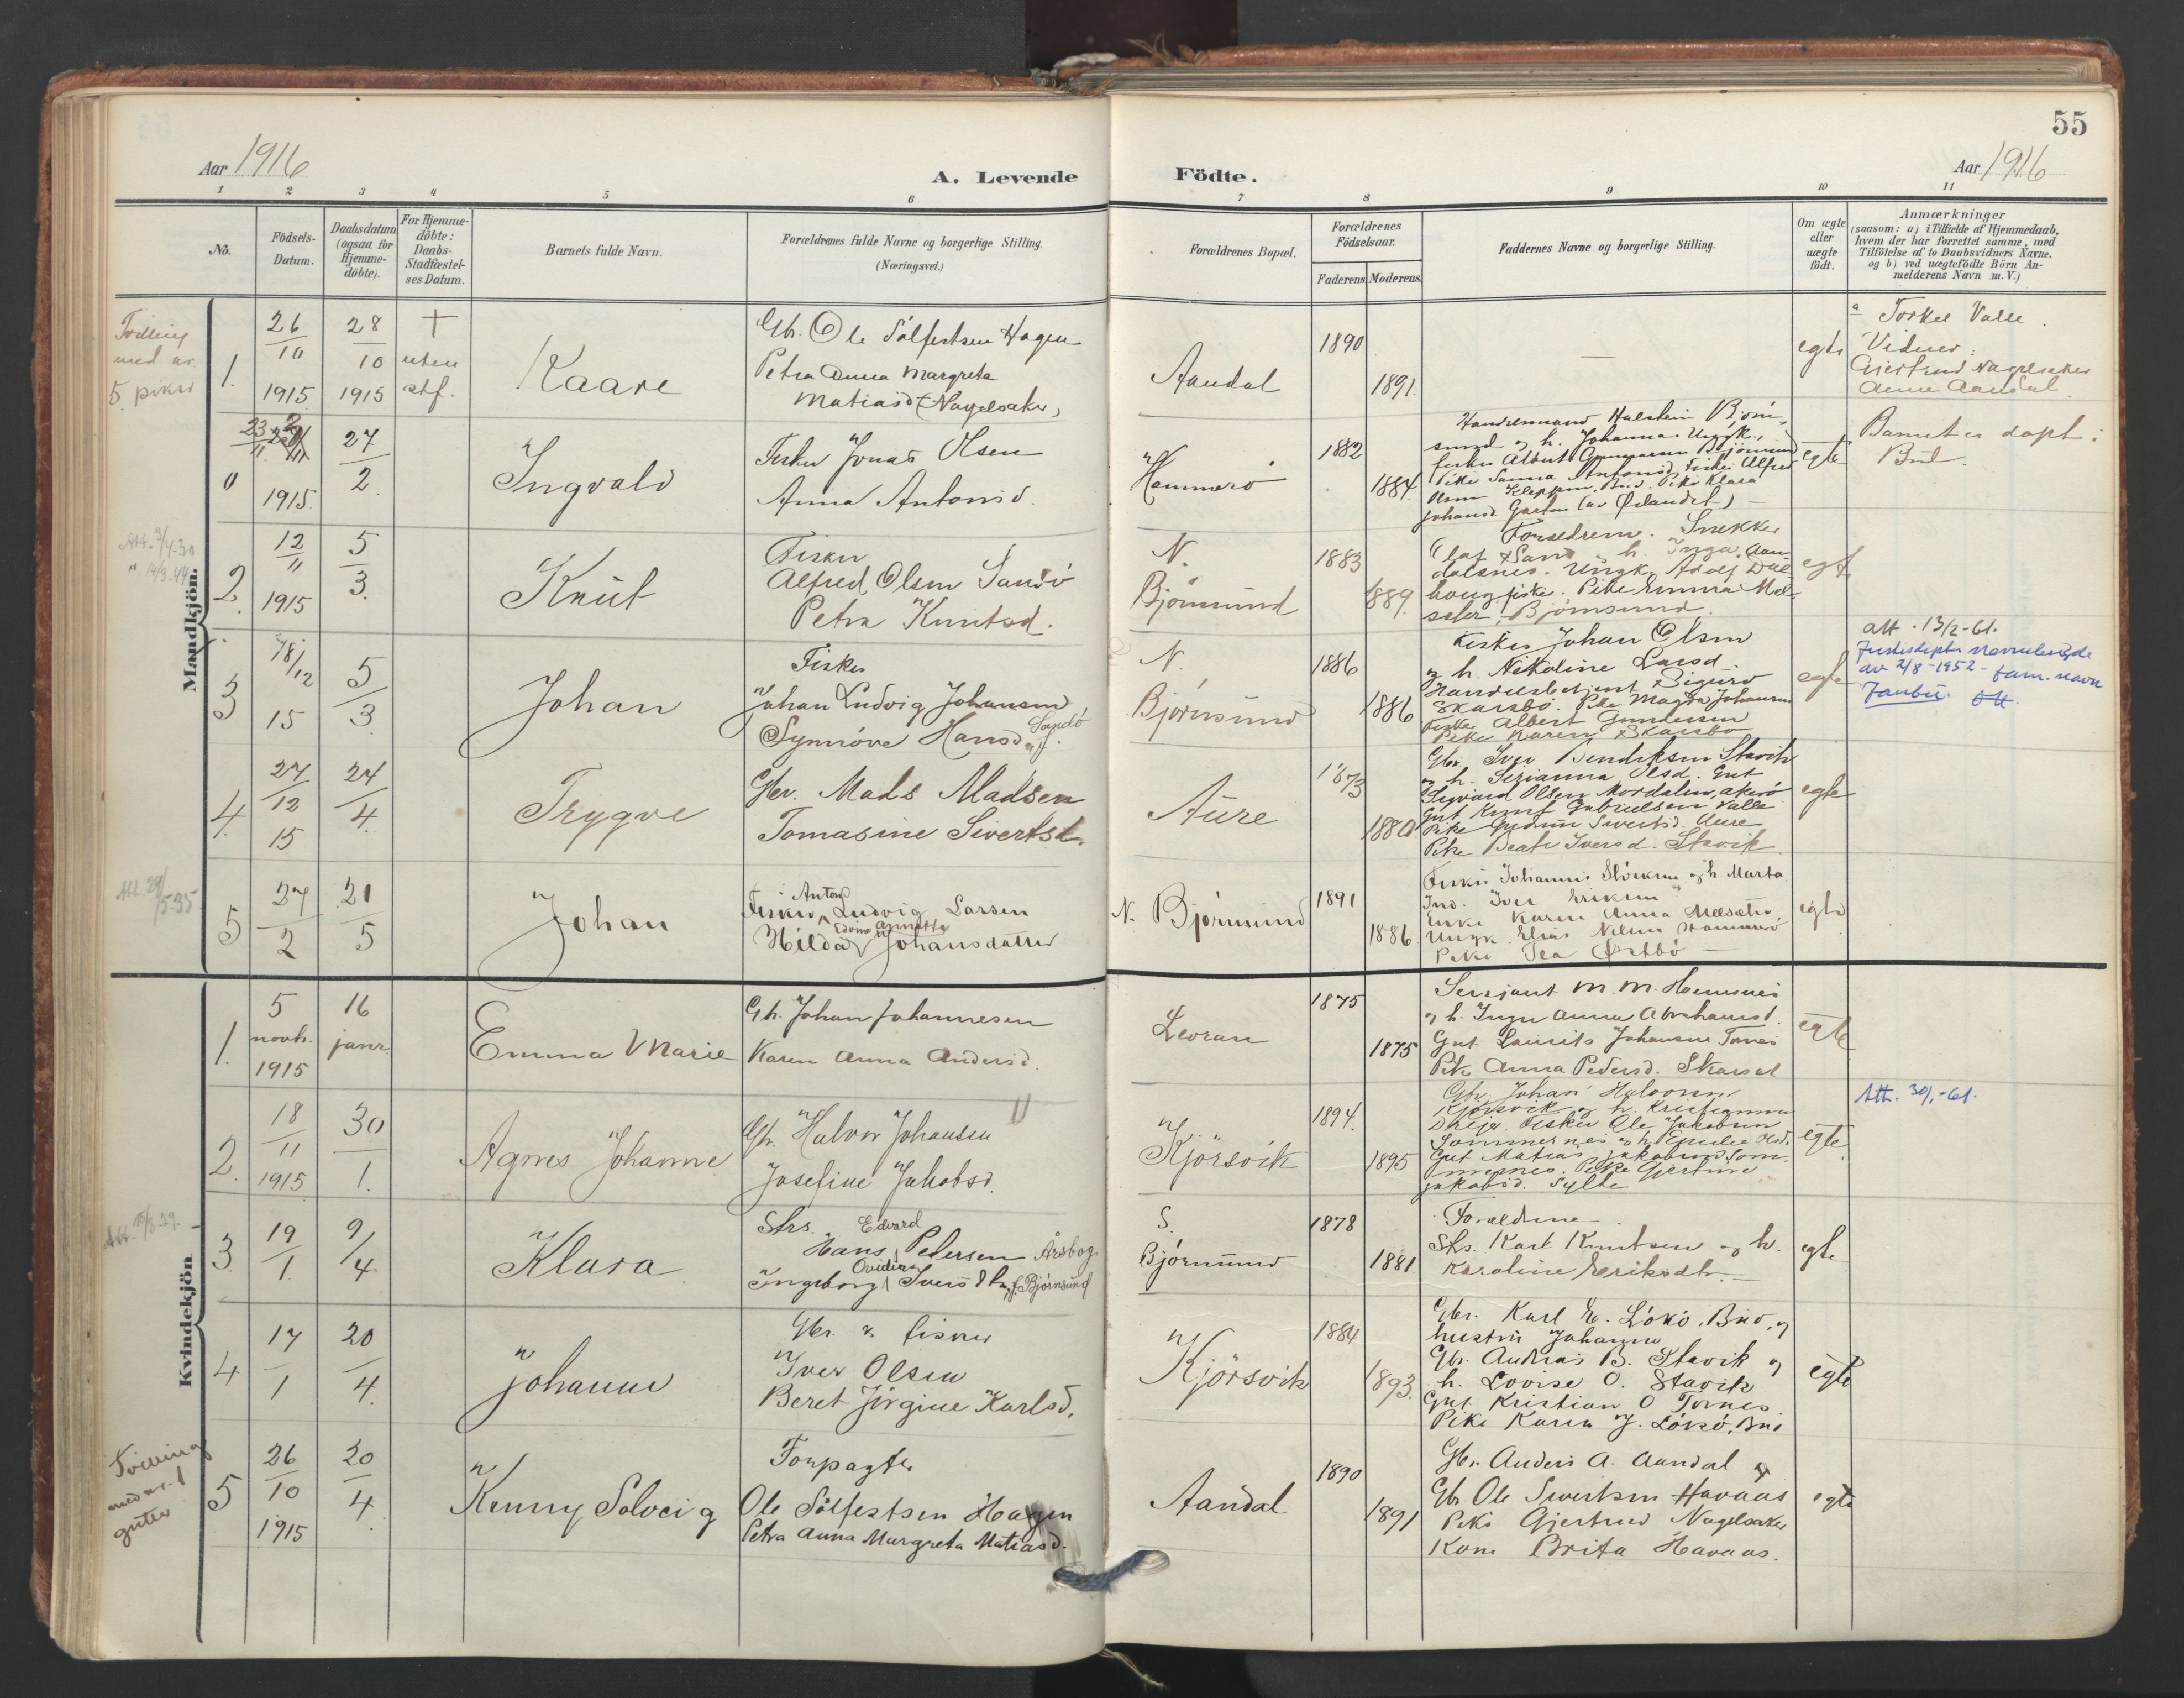 55
Aar 1916
A. Levende
Födte.
Aar 1916
1 2 3 4 5 6 7 8 9 10 11
No.
Födsels-
Datum.
Daabsdatum
(ogsaa for
Hjemme-
döbte).
For Hjemme-
döbte:
Daabs-
Stadfæstel-
ses Datum.
Barnets fulde Navn.
Forældrenes fulde Navne og borgerlige Stilling.
(Næringsvei.)
Forældrenes Bopæl.
Forældrenes
Födselsaar.
Faderens.
Moderens.
Faddernes Navne og borgerlige Stilling.
Om ægte
eller
uægte
födt.
Anmærkninger
(saasom: a) i Tilfælde af Hjemmedaab,
hvem der har forrettet samme, med
Tilföielse af to Daabsvidners Navne,
og b) ved uægtefödte Börn An-
melderens Navn m. V.)
Mandkjön.
Tvilling
med nr.
5 piker
1.
26/10 1915
28/10 1915
†
uten
stf.
Kaare
Gbr. Ole Sölfestsen Hagen
Petra Anna Margreta
Matiasd (Nagelsaker)
Aandal
1890
1891.
—
egte
a Torkel Valle.
Vidner:
Gjertrud Nagelsaker
Anne Aandal.
0
23/11
1915.
27/2.
Ingvald
Fisker Jonas Olsen
Anna Antonsd.
Hammerö
1882
1884.
Handelsmand Halstein Björn-
sund og h. Johanna. Ungk.,
fisker Albert Gunnarsen Björnsund
Pike Sanna Antonsd, Fisker Alfred
Olsen Kleppen, Bud. Pike Klara
Johansd. Garten (av Ørlandet)
egte
Barnet er döpt i
Bud.
Att. 3/4-30
" 14/3.44
2.
12/11 1915
5/3.
Knut
Fisker
Alfred Olsen Sandö
Petra Knutsd.
N.
Björnsund
1883
1889.
Forældrene. Snekker
Olaf Sand h. Inga, Aan-
dalsnes. Ungk. Adolf Dal-
houg fisker. Pike Emma Mel-
seter, Björnsund.
egte
3
18/12 15
5/3.
Johan
Fisker
Johan Ludvig Johansen
Synnöve Hansd. Sandö
N.
Björnsund
1886
1886
Fisker Johan Olsen
og h. Nikoline Larsd.
Handelsbetjent Sigurd
Skarsbö. Pike Magda Johansen
Fisker Albert Gundersen
Pike Karen Skarsbö
egte
att. 13/2-61.
Justisdepts navnebevilgde
av 2/8-1952 - fam. navn
4.
27/12 15
24/4.
Trygve
Gbr. Mads Madsen
Tomasine Sivertsd.
Aure
1873
1880
Gbr. Iver Bendiksen Stavik
og h. Serianna Olsd. Gut
Sigvard Olsen Mordalen, Akerö
Gut Knut Gabrielsen Valle
Pike Gudrun Sivertsd. Aure
Pike Beate Iversd. Stavik.
egte
Att. 29/5-35
5
27/2
21/5
Johan
Fisker Anton Ludvig Larsen
Hilda Edvine Annette Johansdatter
N. Björnsund
1891
1886
Fisker Johannes og h. Marta
Ind. Iver Eriksen
Enke Karen Anna Melsæter,
Ungk. Elias Nilsen Hammerö
Pike Tea Østbö
egte
Kvindekjön
1.
5 novbr. 1915
16 janr.
Emma Marie
Gbr. Johan Johannesen
Karen Anna Andersd.
Leoran
1875
1875
Sersjant M. M. Hemnes
og h. Inger Anna Abrahamsd.
Gut Laurits Johansen Tornes
Pike Anna Pedersd. Skarset
egte
2.
18/11 1915
30/1.
Agnes Johanne
Gbr. Halvor Johansen
Josefine Jakobsd.
Kjörsvik
1894.
1895
Gbr. Johan Halvorsen
Kjörsvik og h. Kristianna
Fisker Ole Jakobsen
Sommernes og h.
Gut Matias Jakobsen Som-
mernes. Pike Gjertine
Jakobsd. Sylte
egte.
Att. 30/1-61.
3.
19/1.
9/4.
Klara
Strs. Hans Edvard Pedersen Årsbog
Ingeborg Ovidia Iversdtr. f. Björnsund
S.
Björnsund
1878
1881
Forældrene.
Strs. Karl Knutsen og h.
Karoline Eriksdtr.
egte
4
17/1
20/4.
Johanne
Gbr. & fisker
Iver Olsen
Beret Jörgine Karlsd.
Kjörsvik
1884
1893.
Gbr. Karl E. Lökö, Bud, og
hustru Johanne
Gbr. Andreas B. Stavik og
h. Lovise O. Stavik
Gut Kristian O Tornes
Pike Karen J. Lökö, Bud
egte
Tvilling
med nr. 1
gutter
5
26/10 1915
20/4.
Kenny Solveig
Forpagter
Ole Sölfestsen Hagen
Petra Anna Margreta Matiasd.
Aandal
1890
1891
Gbr. Anders A. Aandal
Gbr. Ole Sivertsen Havaas
Pike Gjertrud Nagelsaker
Kone Brita Havaas.
egte